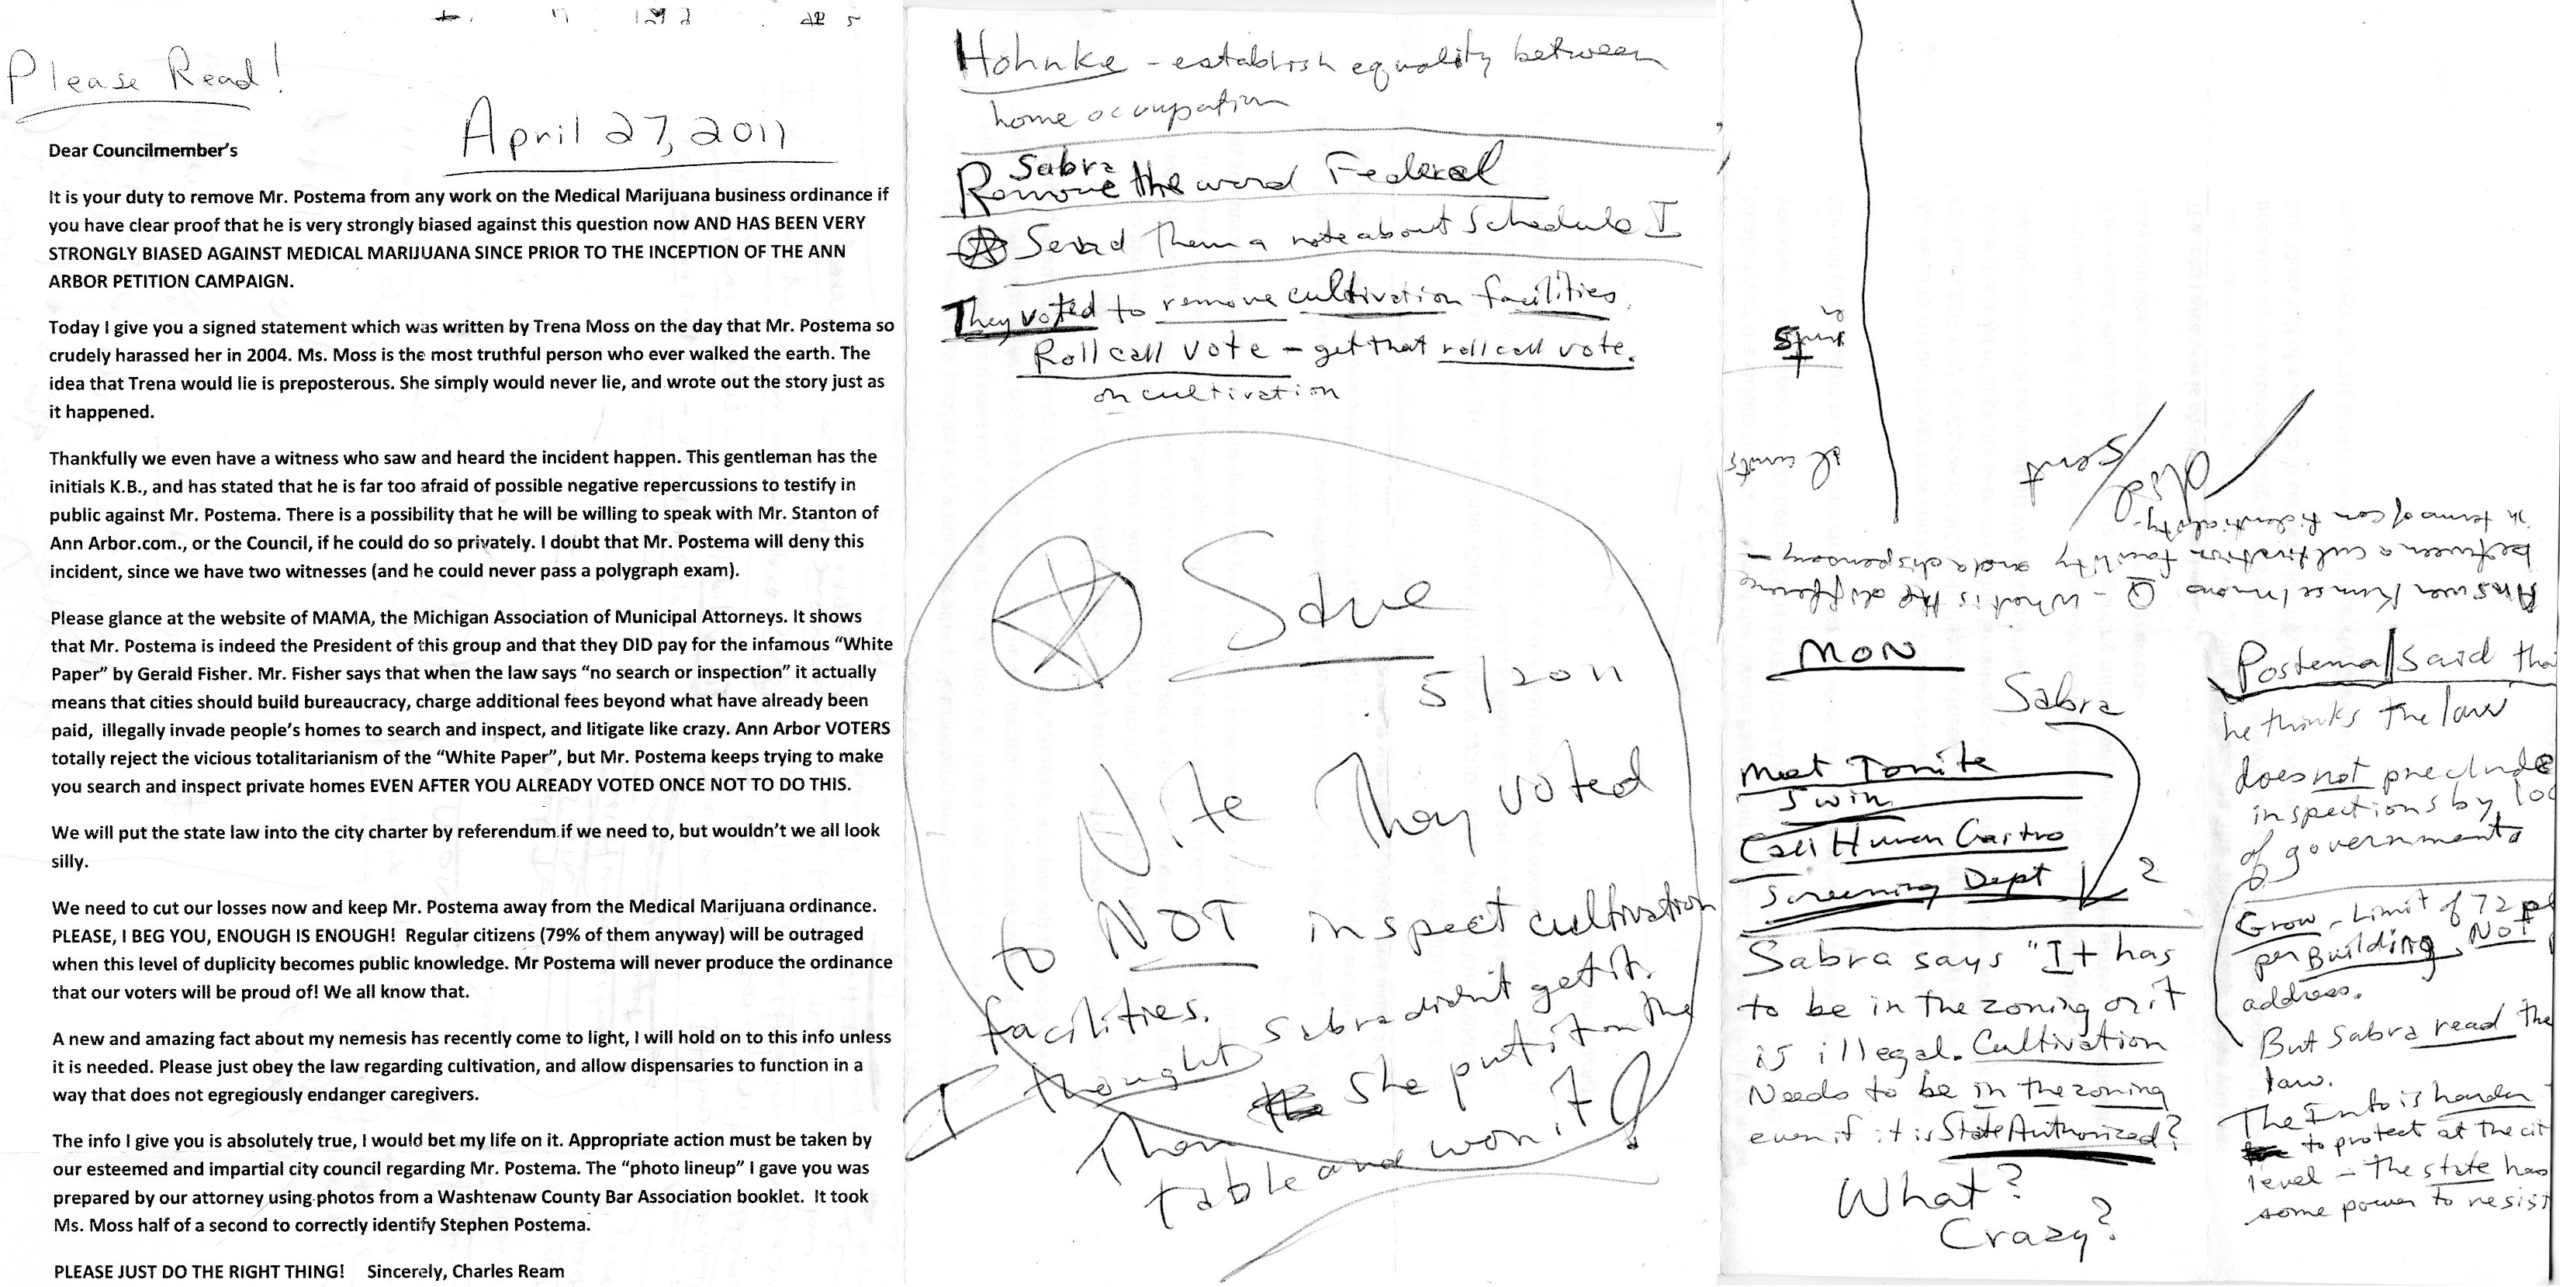 Please Read!
April 27, 2011
Dear Councilmember's
It is your duty to remove Mr. Postema from any work on the Medical Marijuana business ordinance if
you have clear proof that he is very strongly biased against this question now AND HAS BEEN VERY
STRONGLY BIASED AGAINST MEDICAL MARIJUANA SINCE PRIOR TO THE INCEPTION OF THE ANN
ARBOR PETITION CAMPAIGN.
Today I give you a signed statement which was written by Trena Moss on the day that Mr. Postema so
crudely harassed her in 2004. Ms. Moss is the most truthful person who ever walked the earth. The
idea that Trena would lie is preposterous. She simply would never lie, and wrote out the story just as
it happened.
Thankfully we even have a witness who saw and heard the incident happen. This gentleman has the
initials K.B., and has stated that he is far too afraid of possible negative repercussions to testify in
public against Mr. Postema. There is a possibility that he will be willing to speak with Mr. Stanton of
Ann Arbor.com., or the Council, if he could do so privately. I doubt that Mr. Postema will deny this
incident, since we have two witnesses (and he could never pass a polygraph exam).
Please glance at the website of MAMA, the Michigan Association of Municipal Attorneys. It shows
that Mr. Postema is indeed the President of this group and that they DID pay for the infamous "White
Paper" by Gerald Fisher. Mr. Fisher says that when the law says "no search or inspection" it actually
means that cities should build bureaucracy, charge additional fees beyond what have already been
paid, illegally invade people's homes to search and inspect, and litigate like crazy. Ann Arbor VOTERS
totally reject the vicious totalitarianism of the "White Paper", but Mr. Postema keeps trying to make
you search and inspect private homes EVEN AFTER YOU ALREADY VOTED ONCE NOT TO DO THIS.
We will put the state law into the city charter by referendum if we need to, but wouldn't we all look
silly.
We need to cut our losses now and keep Mr. Postema away from the Medical Marijuana ordinance.
PLEASE, I BEG YOU, ENOUGH IS ENOUGH! Regular citizens (79% of them anyway) will be outraged
when this level of duplicity becomes public knowledge. Mr Postema will never produce the ordinance
that our voters will be proud of! We all know that.
A new and amazing fact about my nemesis has recently come to light, I will hold on to this info unless
it is needed. Please just obey the law regarding cultivation, and allow dispensaries to function in a
way that does not egregiously endanger caregivers.
The info I give you is absolutely true, I would bet my life on it. Appropriate action must be taken by
our esteemed and impartial city council regarding Mr. Postema. The "photo lineup" I gave you was
prepared by our attorney using photos from a Washtenaw County Bar Association booklet. It took
Ms. Moss half of a second to correctly identify Stephen Postema.
PLEASE JUST DO THE RIGHT THING! Sincerely, Charles Ream
Hohnke - establish equality between
home occupation
Sabra
Remove the word Federal
Send Them a note about Schedule I
They voted to remove cultivation facilities.
Roll call vote - get that roll call vote.
on cultivation
Save
5/2011
Nite They voted
to NOT inspect cultivation
facilities.
I thought Sabra didn't get it.
Then She put it on the
table and won it!
sent
did
Answer Kunselmans Q - What is the difference
between a cultivation facility and a dispensary -
in terms of confidentiality.
MON
Sabra
Meet Tonite
5 win
Call Human
Screening Dept
2
Sabra says "It has
to be in the zoning or it
is illegal. Cultivation
Needs to be in the zoning
even if it is State Authorized?
What?
Crazy?
Postema said tha
he thinks the law
does not preclude
inspections by loc
of governments
Grow - Limit of 72 pl
per Building, NOT
address.
But Sabra read the
law.
The Info is harder
to protect at the cit
level - the state has
some power to resist